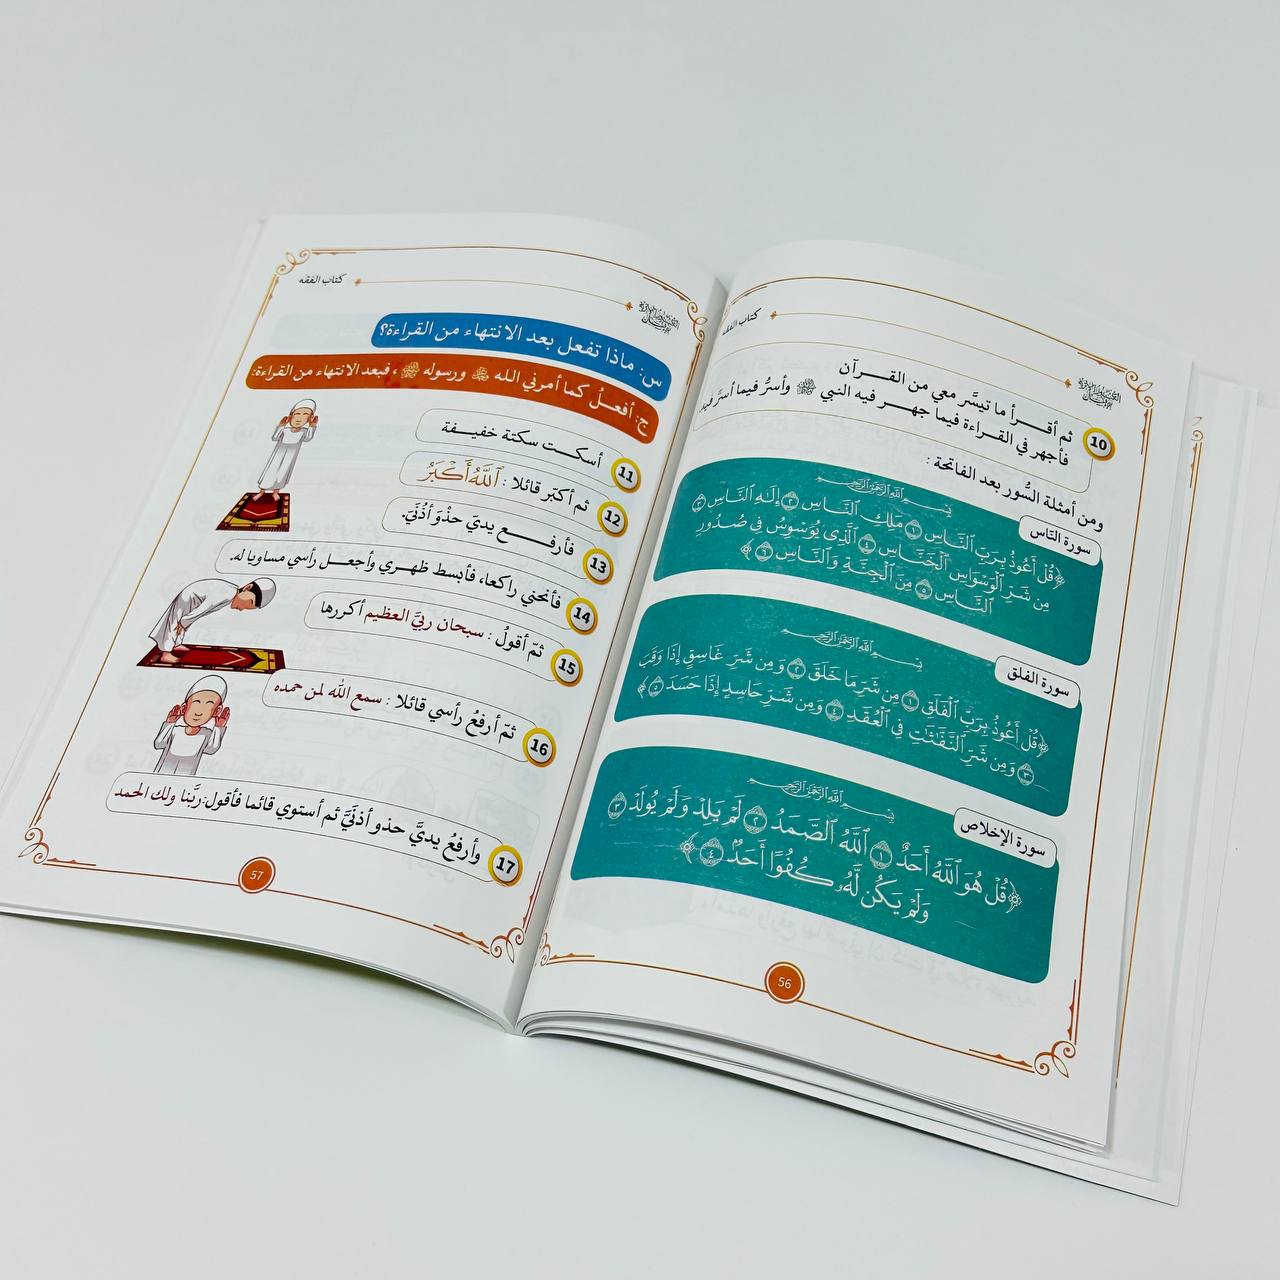 كتاب الفقه
10 ثم أقرأ ما تيسَّر معي من القرآن
فأجهر في القراءة فيما جهر فيه النبي ﷺ وأسرُّ فيما أسرَّ فيه.
ومن أمثلة السُّور بعد الفاتحة :
سورة النّاس
بِسْمِ اللَّهِ الرَّحْمَٰنِ الرَّحِيمِ
﴿قُلْ أَعُوذُ بِرَبِّ ٱلنَّاسِ ١ مَلِكِ ٱلنَّاسِ ٢ إِلَٰهِ ٱلنَّاسِ ٣
مِن شَرِّ ٱلْوَسْوَاسِ ٱلْخَنَّاسِ ٤ ٱلَّذِى يُوَسْوِسُ فِى صُدُورِ
ٱلنَّاسِ ٥ مِنَ ٱلْجِنَّةِ وَٱلنَّاسِ ٦﴾
سورة الفلق
بِسْمِ اللَّهِ الرَّحْمَٰنِ الرَّحِيمِ
﴿قُلْ أَعُوذُ بِرَبِّ ٱلْفَلَقِ ١ مِن شَرِّ مَا خَلَقَ ٢ وَمِن شَرِّ غَاسِقٍ إِذَا وَقَبَ
٣ وَمِن شَرِّ ٱلنَّفَّٰثَٰتِ فِى ٱلْعُقَدِ ٤ وَمِن شَرِّ حَاسِدٍ إِذَا حَسَدَ ٥﴾
سورة الإخلاص
بِسْمِ اللَّهِ الرَّحْمَٰنِ الرَّحِيمِ
﴿قُلْ هُوَ ٱللَّهُ أَحَدٌ ١ ٱللَّهُ ٱلصَّمَدُ ٢ لَمْ يَلِدْ وَلَمْ يُولَدْ ٣
وَلَمْ يَكُن لَّهُۥ كُفُوًا أَحَدٌۢ ٤﴾
56
كتاب الفقه
س: ماذا تفعل بعد الانتهاء من القراءة؟
ج: أفعلُ كما أمرني الله ﷻ ورسوله ﷺ، فبعد الانتهاء من القراءة:
11 أسكت سكتة خفيفة
12 ثم أكبّر قائلا : ٱللَّهُ أَكْبَرُ
13 فأرفع يديَ حذْوَ أذُنَيَّ.
14 فأنحني راكعا، فأبسط ظهري وأجعل رأسي مساويا له.
15 ثمّ أقولُ : سبحان ربيَّ العظيم أكررها
16 ثمّ أرفعُ رأسي قائلا : سمع الله لمن حمده
17 وأرفعُ يديَّ حذو أذنَيَّ ثم أستوي قائما فأقول:ربَّنا ولك الحمد
57